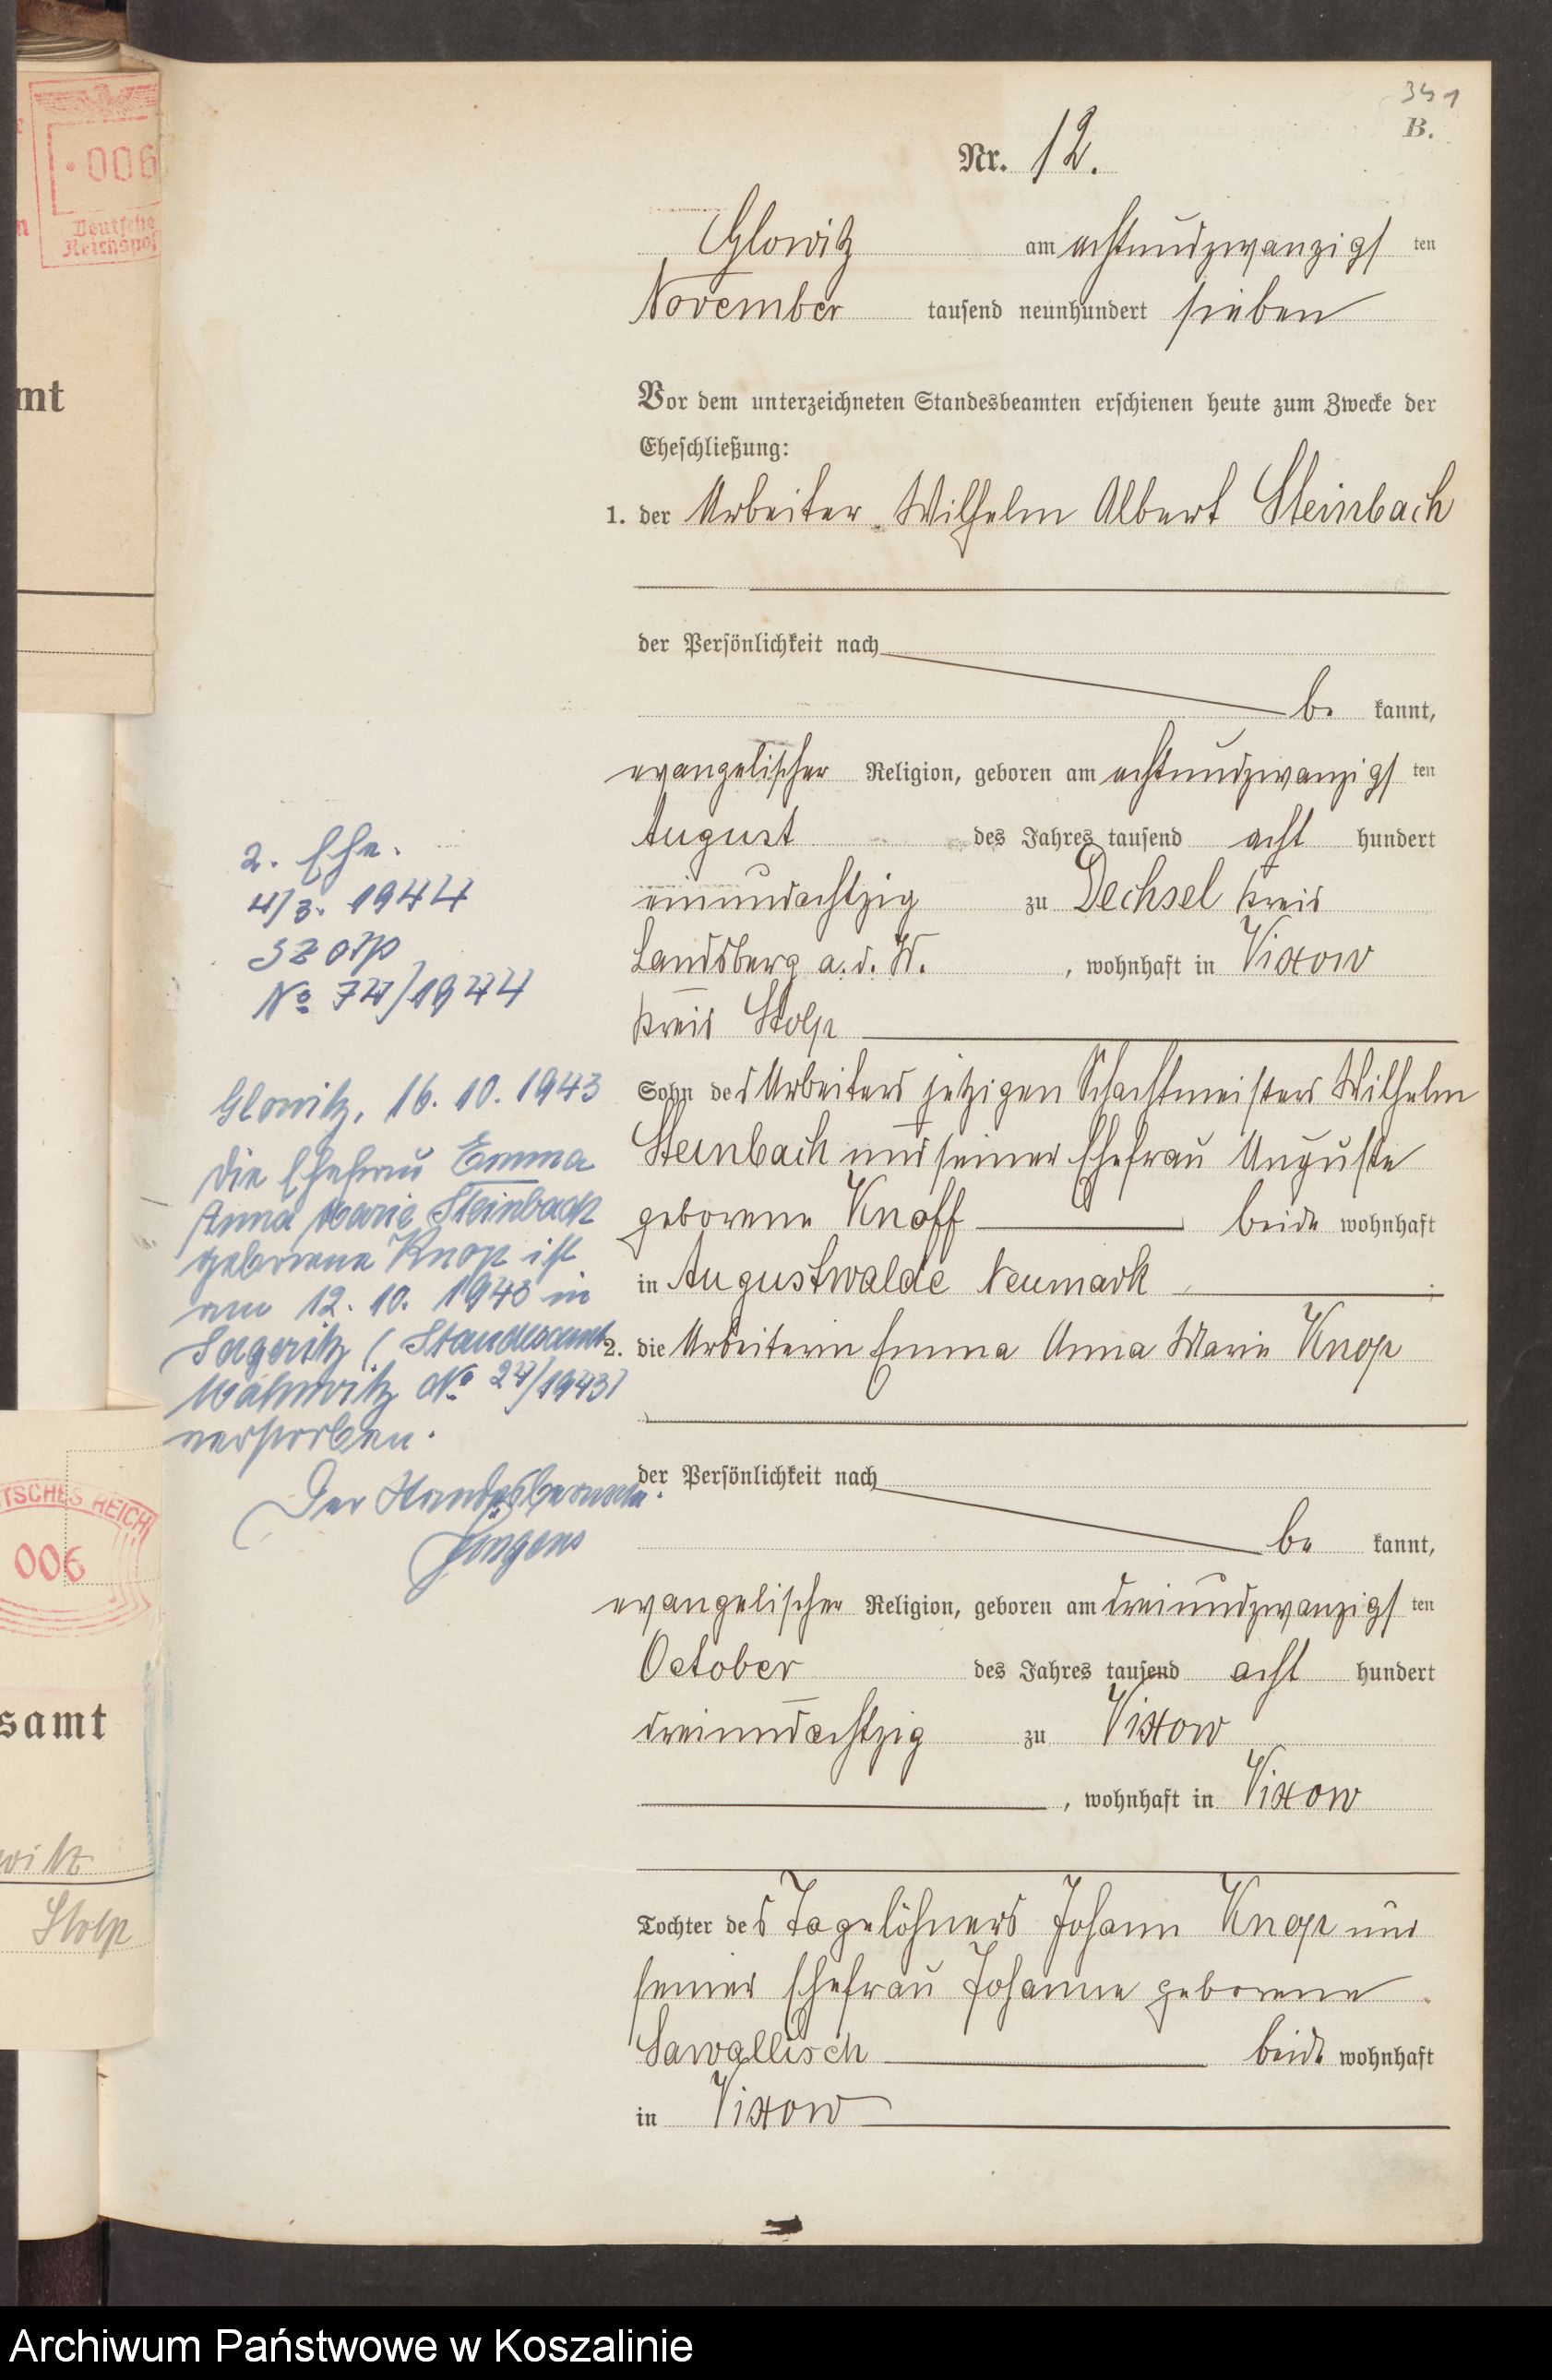 341
B.
Nr. 12.
Glowitz am achtundzwanzigsten
November tausend neunhundert sieben
Vor dem unterzeichneten Standesbeamten erschienen heute zum Zwecke der
Eheschließung:
1. der Arbeiter Wilhelm Albert Steinbach
der Persönlichkeit nach
be kannt,
evangelischer Religion, geboren am achtundzwanzigsten
August des Jahres tausend acht hundert
einundachtzig zu Dechsel Kreis
Landsberg a. d. W. , wohnhaft in Vixow
Kreis Stolp
Sohn des Arbeiters jetzigen Schachtmeisters Wilhelm
Steinbach und seiner Ehefrau Auguste
geborene Knoff beide wohnhaft
in Augustwalde Neumark
2. die Arbeiterin Emma Anna Marie Knop
der Persönlichkeit nach
be kannt,
evangelischer Religion, geboren am dreiundzwanzigsten
October des Jahres tausend acht hundert
dreiundachtzig zu Vixow
, wohnhaft in Vixow
Tochter des Tagelöhners Johann Knop und
seiner Ehefrau Johanne geborene
Sawallisch beide wohnhaft
in Vixow
2. Ehe.
4/3. 1944
Stolp
No 74/1944
Glowitz, 16. 10. 1943
Die Ehefrau Emma
Anna Marie Steinbach
geborene Knop ist
am 12. 10. 1943 in
Sageritz (Standesamt
No 24/1943)
verstorben.
Der Standesbeamte.
006
Deutsche
Reichspost
mt
TSCHES REICH
006
samt
witz
Stolp
Archiwum Państwowe w Koszalinie